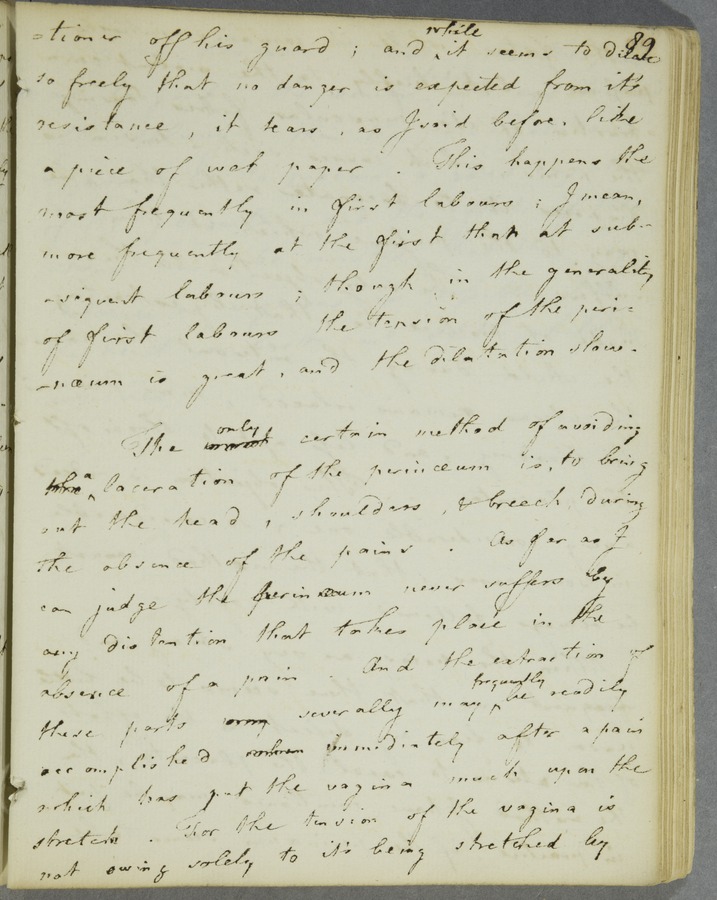 89
=tioner off his guard ; and while it seems to dilate
so freely that no danger is expected from it's
resistance, it tears, as I said before, like
a piece of wet paper. This happens the
most frequently in first labours ; I mean,
more frequently at the first than at sub-
-sequent labours ; though in the generality
of first labours the tension of the peri=
-næum is great, and the dilatation slow.
The only certain method of avoiding
a laceration of the perinæum is, to bring
out the head, shoulders, & breech, during
the absence of the pains. As far as I
can judge the perinæum never suffers by
any distention that takes place in the
absence of a pain. And the extraction of
these parts severally may frequently be readily
accomplished immediately after a pain
which has put the vagina much upon the
stretch. For the tension of the vagina is
not owing solely to it's being stretched by